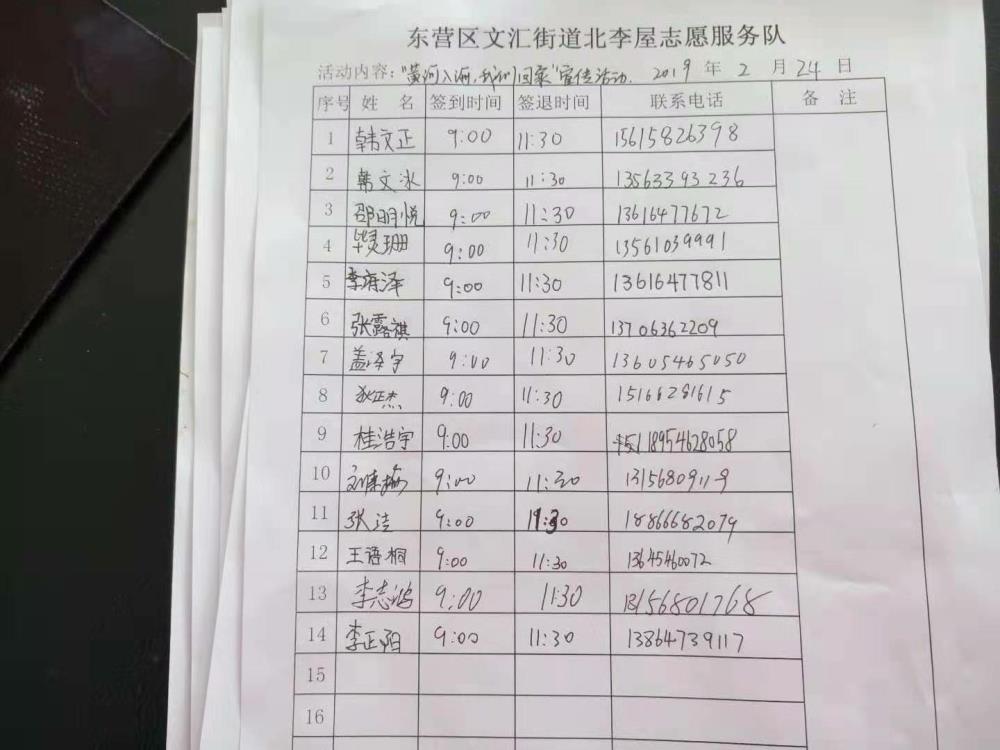 东营区文汇街道北李屋志愿服务队
活动内容:"黄河入海,我们回家"宣传活动. 2019 年 2 月 24 日
序号 姓 名 签到时间 签退时间 联系电话 备 注
1 韩文正 9:00 11:30 15615826398
2 韩文冰 9:00 11:30 13563393236
3 邵明悦 9:00 11:30 13616477672
4 毕灵珊 9:00 11:30 13561039991
5 李海泽 9:00 11:30 13616477811
6 张露祺 9:00 11:30 13706362209
7 盖泽宇 9:00 11:30 13605465050
8 狄正杰 9:00 11:30 15166281615
9 桂浩宇 9:00 11:30 18954628058
10 刘 9:00 11:30 13156809119
11 张洁 9:00 11:30 18866682079
12 王语桐 9:00 11:30 13645460072
13 李志鸿 9:00 11:30 13156801768
14 李正阳 9:00 11:30 13864739117
15
16